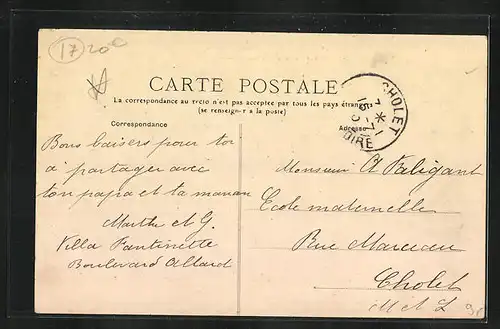 1720
CARTE POSTALE
La correspondance au recto n'est pas acceptée par tous les pays étran
(se renseigner a la poste)
Correspondance
Adresse
CHOLET
OIRE
Bons baisers pour toi
à partager avec
ton papa et ta maman
Marthe et G.
Villa Fantinette
Boulevard Allard
Monsieur A Paligant
Ecole maternelle
Rue Marceau
Cholet
M et L